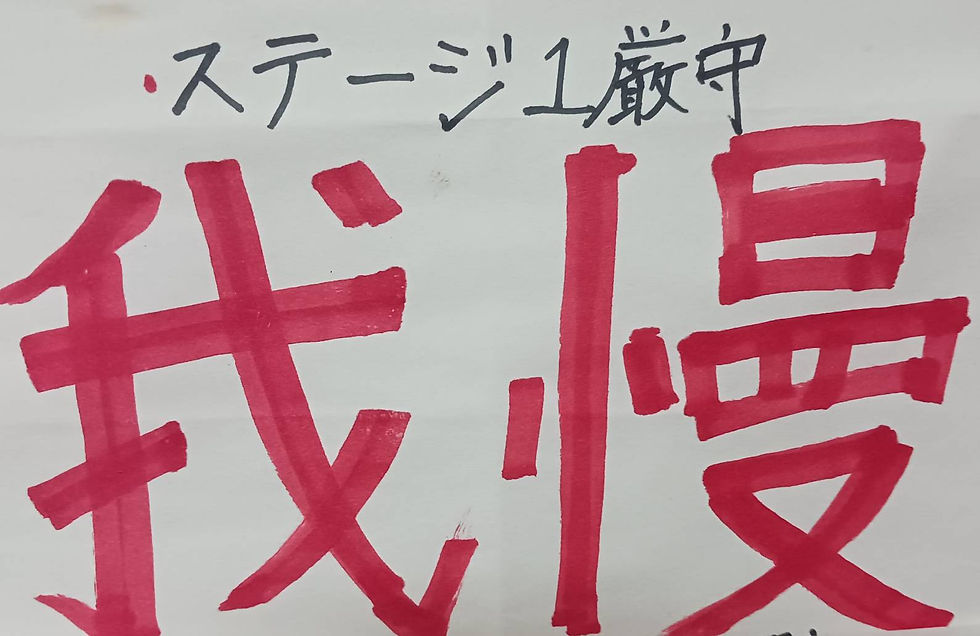 ・ステージ1厳守
我慢